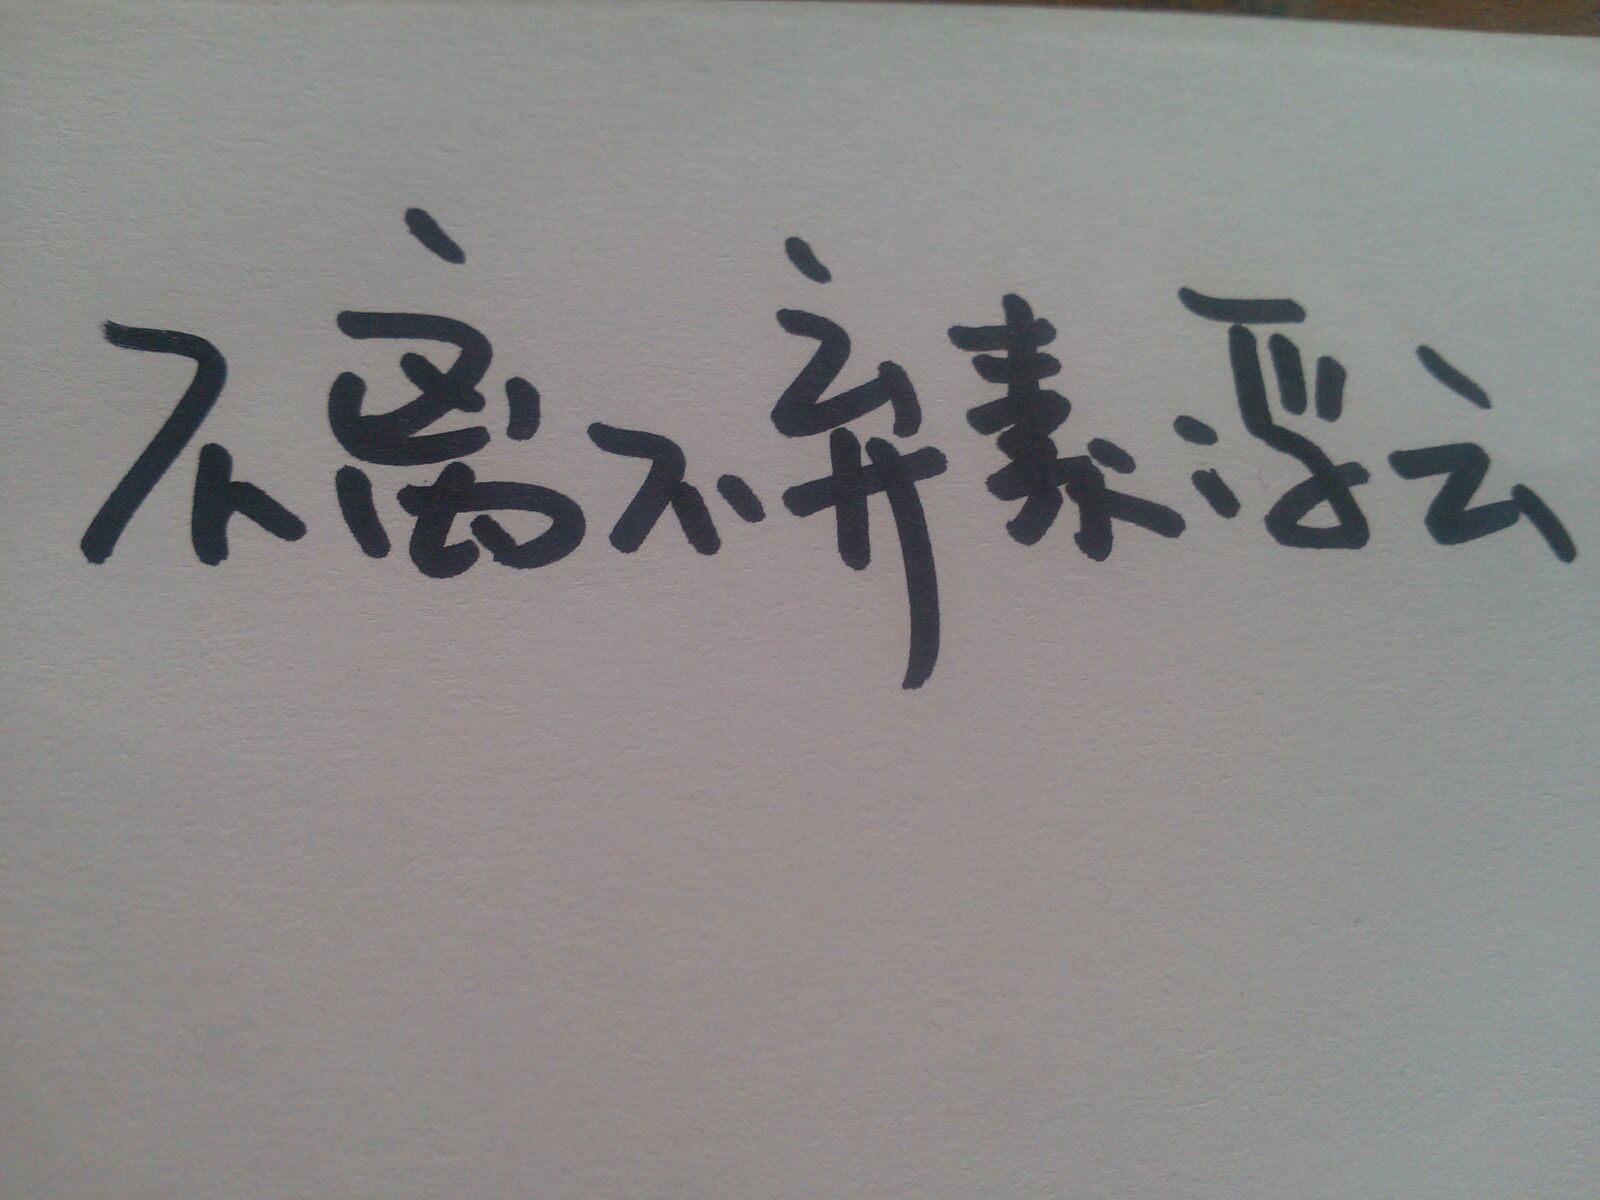 不离不弃素浮云